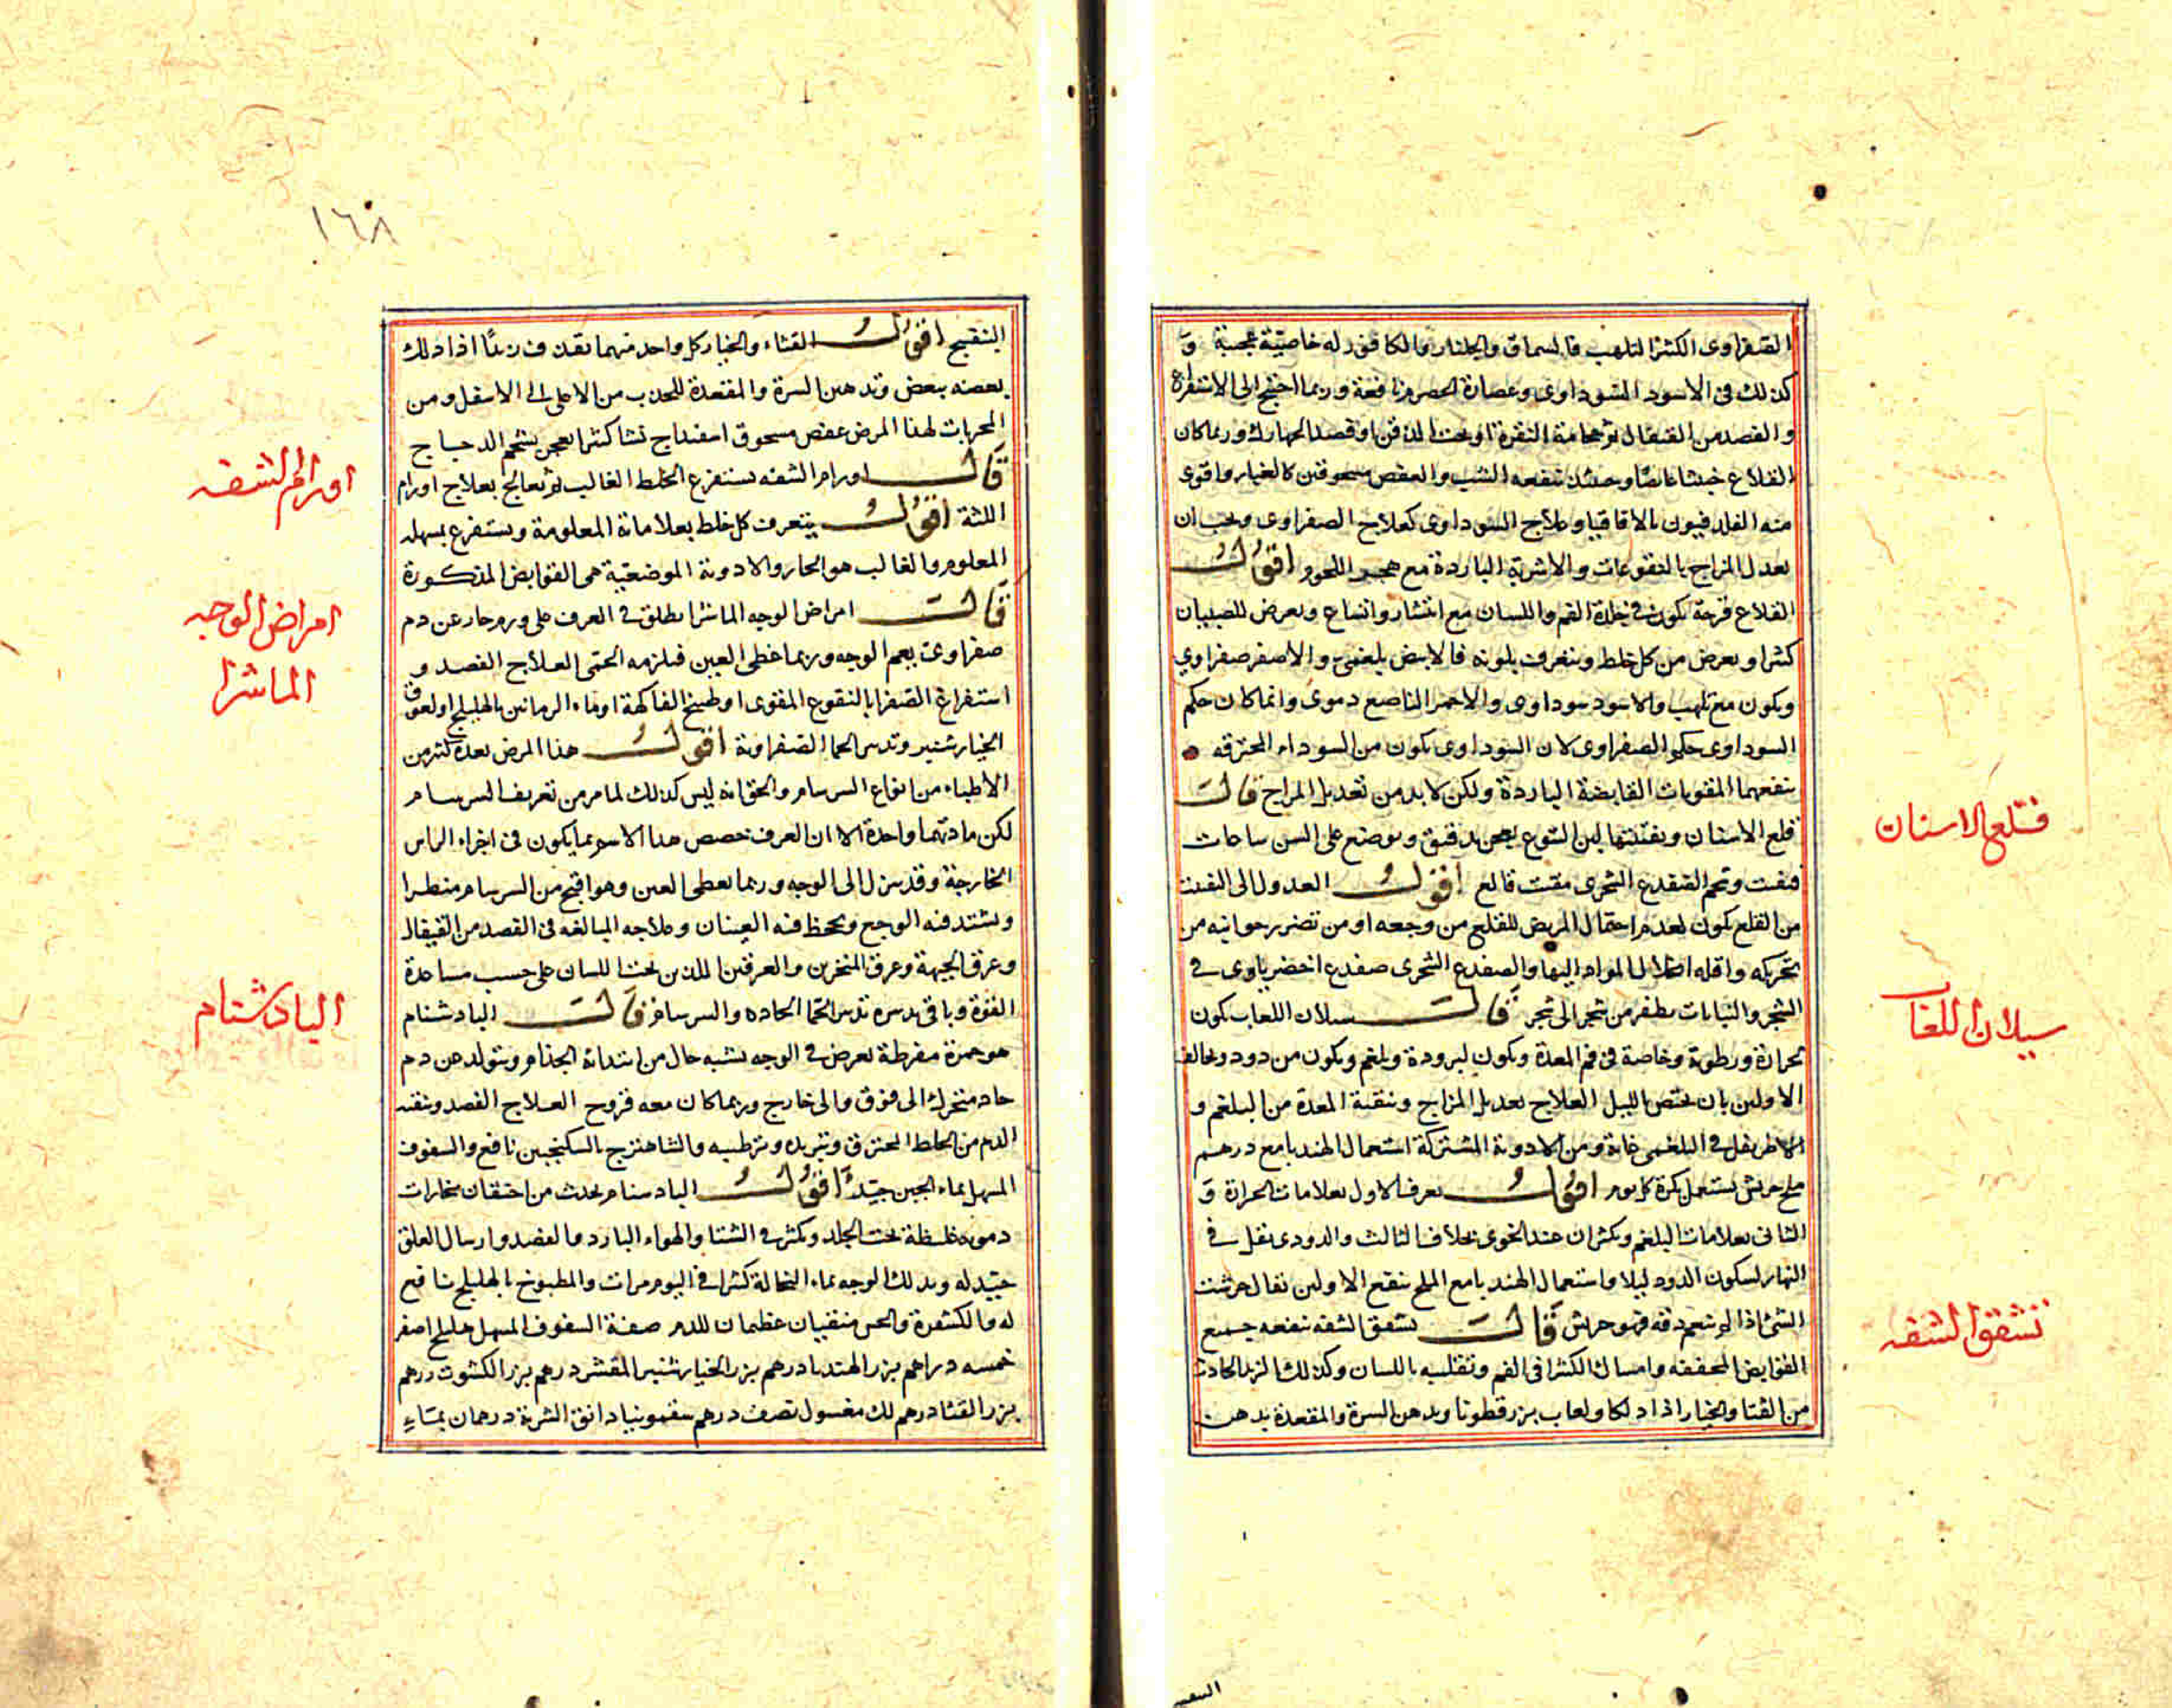 الصفراوى الكثير التلهب فالسماق والجلنار والكافور له خاصية عجيبة و
كذلك فى الاسود السوداوى وعصارة الحصرم نافعة وربما احتيج الى الاستفراغ
والفصد من القيفال ثم حجامة النقرة او تحت الذقن او فصد الجهارك وربما كان
القلاع خبيثا غاصا وحينئذ ينفعه الشب والعفص مسحوقين كالغبار واقوى
منه الفلدفيون بالاقاقيا وعلاج السوداوى كعلاج الصفراوى ويجب ان
يعدل المزاج بالنقوعات والاشربة الباردة مع هجر اللحوم اقول
القلاع قرحة تكون فى جلدة الفم واللسان مع انتشار واتساع ويعرض للصبيان
كثيرا ويعرض من كل خلط ويتعرف بلونه فالابيض بلغمى والاصفر صفراوى
ويكون مع تلهب والاسود سوداوى والاحمر الناصع دموى وانما كان حكم
السوداوى حكم الصفراوى لان السوداوى يكون من السوداء المحترقه
ينفعهما المقويات القابضة الباردة ولكن لابد من تعديل المزاج قال
قلع الاسنان وتفتيتها لبن اليتوع يعجن بدقيق ويوضع على السن ساعات
فيفت وشحم الضفدع الشجرى مفتت قالع اقول العدول الى التفتت
من القلع يكون لعدم احتمال المريض للقلع من وجعه او من تضرر جوانبه من
تحريكه واقله المواد اليها والضفدع الشجرى ضفدع اخضر ياوى فى
الشجر والنباتات يطفر من شجر الى شجر قال سيلان اللعاب يكون
لحرارة ورطوبة وخاصة فى فم المعدة ويكون لبرودة وبلغم ويكون من دود ويخالف
الاولين بان يختص بالليل العلاج تعديل المزاج وتنقية المعدة من البلغم و
الاطريفل فى البلغمى غاية ومن الادوية المشتركة استعمال الهندبا مع درهم
ملح جريش يستعمل بكرة كل يوم اقول يعرف الاول بعلامات الحرارة و
الثانى بعلامات البلغم ويكثران عند الخوى بخلاف الثالث والدودى يقل فى
النهار لسكون الدود ليلا واستعمال الهندبا مع الملح ينفع الاولين يقال جرشت
الشئ اذا لم تنعم دقه فهو جريش قال تشقق الشفه تنفعه جميع
القوابض المجففه وامساك الكثيرا فى الفم وتقلبه باللسان وكذلك الزبد الحادث
من القثا والخيار اذا دلكا ولعاب بزر قطونا ويدهن السرة والمقعدة بدهن
قلع الاسنان
سيلان اللعاب
تشقق الشفه
١٦٨
البنفسج اقول القثاء والخيار كل واحد منهما يقذف زبدًا اذا دلك
بعضه ببعض وتدهين السرة والمقعدة للجذب من الاعلى الى الاسفل ومن
المجربات لهذا المرض عفص مسحوق اسفيداج نشا كثيرا يعجن بشحم الدجاج
قال اورام الشفه يستفرغ الخلط الغالب ثم يعالج بعلاج اورام
اللثة اقول يتعرف كل خلط بعلاماته المعلومة ويستفرغ بمسهله
المعلوم والغالب هو الحار والادوية الموضعية هى القوابض المذكورة
قال امراض الوجه الماشرا يطلق فى العرف على ورم حار عن دم
صفراوى يعم الوجه وربما غطى العين فيلزمه الحمى العلاج الفصد و
استفراغ الصفرا بالنقوع المقوى او طبيخ الفاكهة او ماء الرمانين بالهليلج او لعوق
الخيار شنبر وتدبير الحما الصفراوية اقول هذا المرض يعده كثير من
الاطباء من انواع السرسام والحق انه ليس كذلك لما مر من تعريف السرسام
لكن مادتهما واحدة الا ان العرف خصص هذا الاسم بما يكون فى اجزاء الراس
الخارجة وقد ينزل الى الوجه وربما يعطى العين وهو اقبح من السرسام منظرا
ويشتد فيه الوجع ويجحظ فيه العينان وعلاجه المبالغه فى الفصد من القيفال
وعرق الجبهة وعرق المنخرين والعرقين اللذين تحت اللسان على حسب مساعدة
القوة وباقى تدبيره تدبير الحمى الحاده والسرسام قال البادشنام
هو حمرة مفرطة تعرض فى الوجه يشبه حال من ابتدائه الجذام ويتولد عن دم
حاد متحرك الى فوق والى خارج وربما كان معه قروح العلاج الفصد وتنقية
الدم من الخلط المحترق وتبريده وترطيبه والشاهترج بالسكنجبين نافع والسفوف
المسهل بماء الجبن جيّد اقول البادشنام يحدث من احتقان بخارات
دمويه غليظة تحت الجلد ويكثر فى الشتا والهواء البارد والفصد وارسال العلق
جيّد له ويدلك الوجه بماء النخالة كثيرا فى اليوم مرات والمطبوخ بالهليلج نافع
له والكشفرة والخس منقيان عظيمان للدم صفة السفوف المسهل هليلج اصفر
خمسه دراهم بزر الهندبا درهم بزر الخيار شنبر المقشر درهم بزر الكشوت درهم
بزر القثا درهم لك مغسول نصف درهم سقمونيا دانق الشربة درهمان بماءٍ
اورام الشفه
امراض الوجه
الماشرا
البادشنام